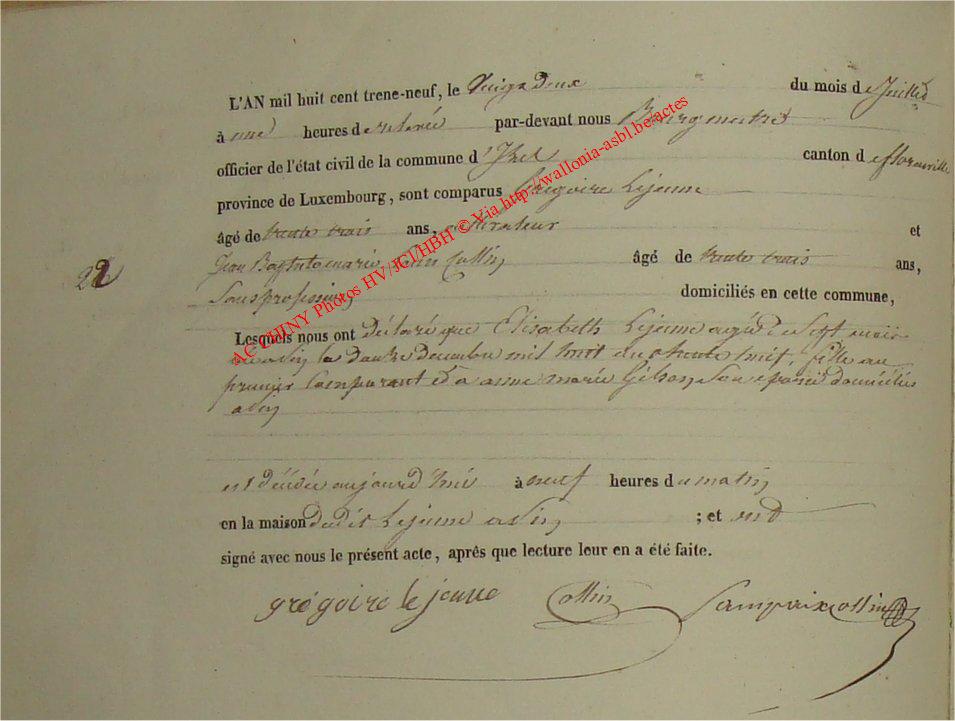 L'AN mil huit cent trene-neuf, le Vingt deux du mois de Juillet
à une heures de relevée par-devant nous Bourgmestre
officier de l'état civil de la commune d'Izel canton de florenville
province de Luxembourg, sont comparus Grégoire Lejeune
âgé de trente trois ans, cultivateur et
Jean Baptiste marie Collin âgé de trente trois ans,
22
Sans profession domiciliés en cette commune,
Lesquels nous ont déclaré que Elisabeth Lejeune agée de Sept mois
née a le douze decembre mil huit cent trente huit, fille du
premier Comparant et d'anne marie Gilson, Son épouse domiciliés
a
est décédée aujourd'hui à neuf heures du matin
en la maison dudit Lejeune a ; et ont
signé avec nous le présent acte, après que lecture leur en a été faite.
grégoire le jeune Collin Lampaix collin
AC CHINY Photos HV/JCI/HBH © Via http://wallonia-asbl.be/actes